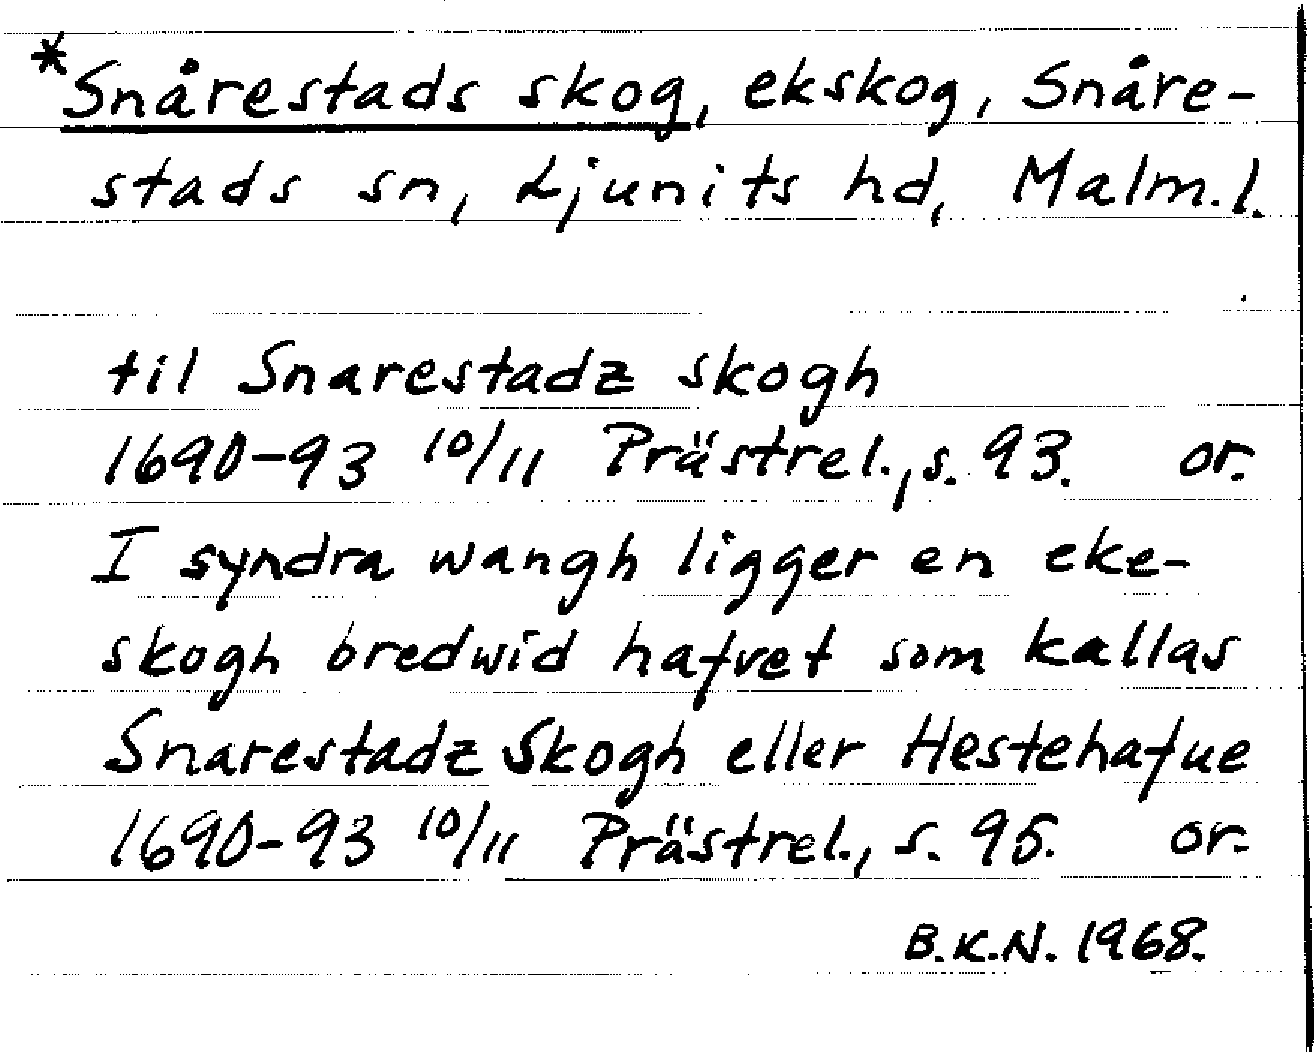 *Snårestads skog, ekskog, Snåre-
stads sn, Ljunits hd, Malm.l.
til Snarestadz skogh
1690-93 10/11 Prästrel., s. 93. or.
I syndra wangh ligger en eke-
skogh bredwid hafvet som kallas
Snarestadz Skogh eller Hestehafue
1690-93 10/11 Prästrel., s. 95. or.
B.K.N. 1968.